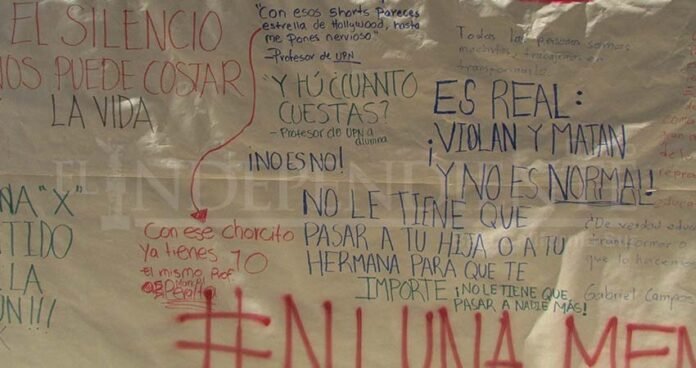 EL SILENCIO
NOS PUEDE COSTAR
LA VIDA
NA "X"
TIDO
E LA
ÚN!!!
"Con esos shorts Pareces
estrella de Hollywood, hasta
me pones nervioso"
-Profesor de UPN
"Y TÚ ¿CUANTO
CUESTAS?
- Profesor de UPN a
alumna
¡NO ES NO!
Con ese chorcito
Ya tienes 10
el mismo Prof.
Todas las personas somos
machistas, trabajemos en
transformarlo
ES REAL:
¡VIOLAN Y MATAN
¡Y NO ES NORMAL!
NO LE TIENE QUE
PASAR A TU HIJA O A TU
HERMANA PARA QUE TE
IMPORTE
¡NO LE TIENE QUE
PASAR A NADIE MÁS!
¿De verdad educa
transformar o
que lo hacemos
Gabriel Campos
#NI UNA MEN
EL INDEPENDIENTE